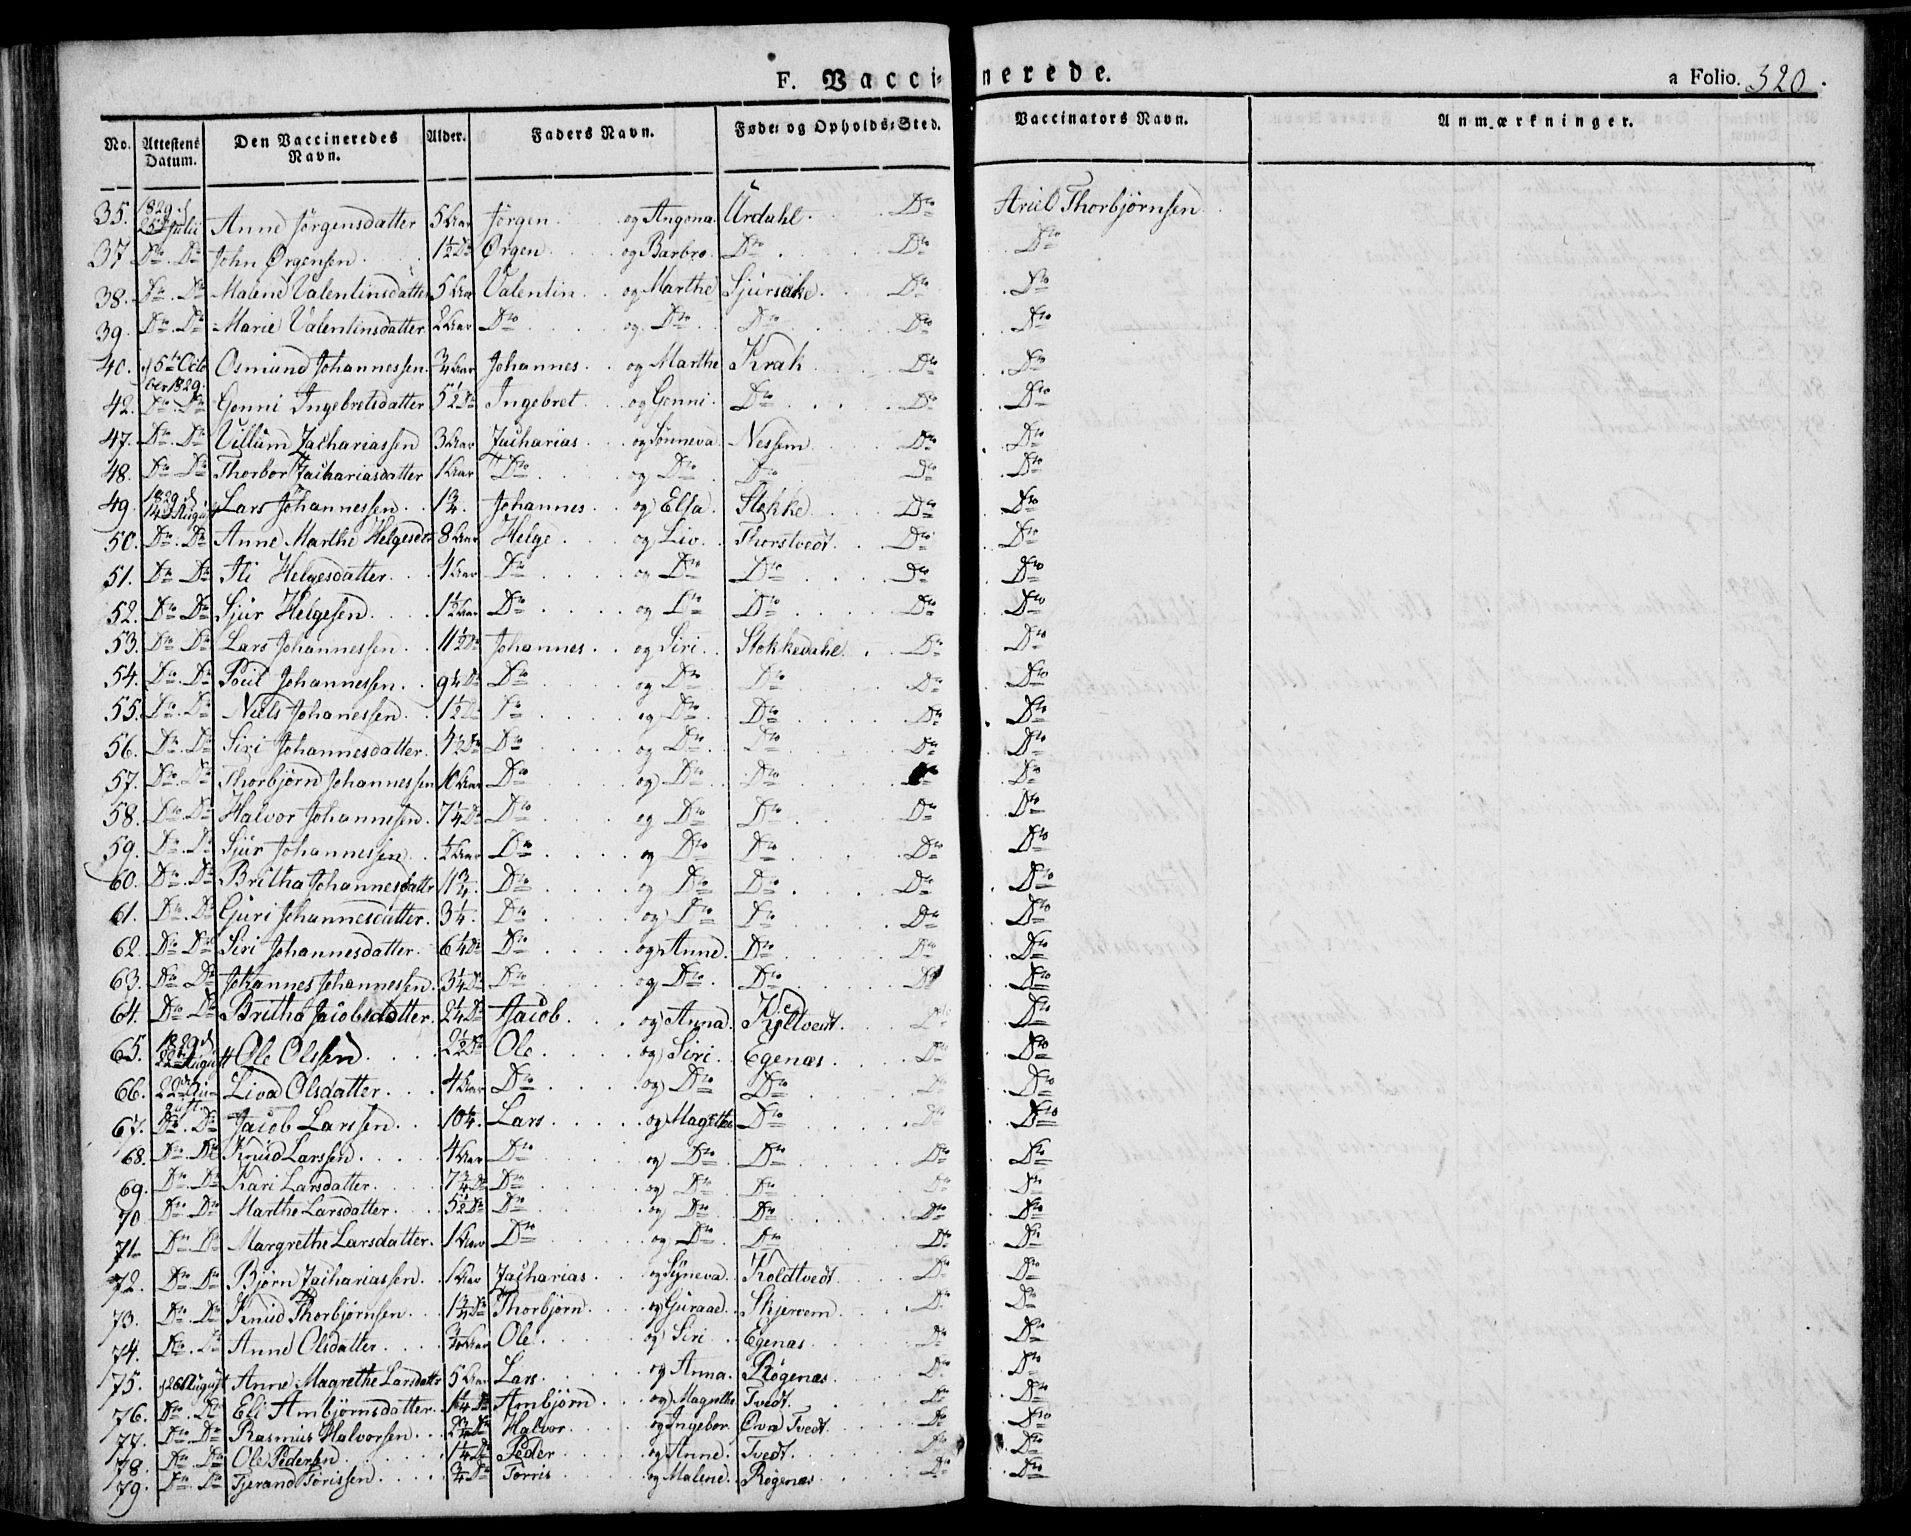 F. Vaccinerede.
a Folio. 320.
No. Attestens Datum. Den Vaccineredes Navn. Alder. Faders Navn. Føde- og Opholds-Sted. Vaccinators Navn. Anmærkninger.
35. 1829 d 25 Julii Anne Jørgensdatter 5 Aar Jørgen og Angona Urdahl. Do Ariel Thorbjørnsen
37 Do Do John Ørgensen 1½ Do Ørgen og Barbro Do Do Do
38. Do Do Malene Valentinsdatter 5 Aar Valentin og Marthe Do Do
39. Do Do Marie Valentinsdatter 2 Aar Do og Do Do Do Do
40. 5te October 1829. Osmund Johannessen ¾ Aar Johannes og Marthe Krak Do Do
42. Do Do Gonni Ingebretsdatter 5½ Do Ingebret og Gonni Do Do Do
47. Do Do Villum Zachariassen 3 Aar Zacharias og Sønneva Nessem Do Do
48. Do Do Thorbor Zachariasdatter 1 Aar Do og Do Do Do Do
49. 1829 d 14 August Lars Johannessen 1¾ Johannes og Elsa Stokke Do Do
50. Do Do Anne Marthe Helgesdtr 8 Aar Helge og Liv Thorstvedt Do Do
51. Do Do Helgesdatter 4 Aar Do og Do Do Do Do
52. Do Do Sjur Helgesen 1½ Aar Do og Do Do Do Do
53. Do Do Lars Johannessen 11½ Do Johannes og Siri Stokkedahl Do Do
54. Do Do Poul Johannessen 9¼ Do Do og Do Do Do Do
55. Do Do Niels Johanessen 1½ Do Do og Do Do Do Do
56. Do Do Siri Johannesdatter 4½ Do Do og Do Do Do Do
57. Do Do Thorbjørn Johannessen 10 Aar Do og Do Do Do Do
58. Do Do Halvor Johannesen 7¼ Do Do og Do Do Do Do
59. Do Do Sjur Johannessen ½ Aar Do og Do Do Do Do
60. Do Do Britha Johannesdattr 1¾ Do og Do Do Do Do
61. Do Do Guri Johannesdatter 3¼ Do og Do Do Do Do
62. Do Do Siri Johannesdatter 6¼ Do Do og Anne Do Do Do
63. Do Do Johannes Johannessen 3¼ Do Do og Do Do Do Do
64. Do Do Britha Jacobsdatter 2¼ Do Jacob og Anna Do Do
65. 1829 d 22 August Ole Olssen 2½ Do Ole og Siri Egenæs Do Do
66. 22 August Liva Olsdatter 4 Aar Do og Do Do Do Do
67. Do Do Jacob Larssen 10¼ Lars og Magrethe Do Do Do
68. Do Do Knud Larssen 4 Aar Do og Do Do Do Do
69. Do Do Kari Larsdatter 7¾ Do Do og Do Do Do Do
70 Do Do Marthe Larsdatter 5½ Do Do og Do Do Do Do
71 Do Do Margrethe Larsdatter 1 Aar Do og Do Do Do Do
72. Do Do Bjørn Zachariassen 1 Aar Zacharias og Syneva Koldtvedt Do Do
73. Do Do Knud Thorbjørnsen 1¾ Do Thorbjørn og Guraad Skjervem Do Do
74. Do Do Anne Olsdatter ¾ Aar Ole og Siri Egenæs Do Do
75. 26 August Anne Magrethe Larsdattr 5 Aar Lars og Anna Røgenæs Do Do
76. Do Do Eli Ambjørnsdatter 1¼ Do Ambjørn og Magrethe Tvedt Do Do
77. Do Do Rasmus Halvorsen 2¾ Do Halvor og Ingebor Tvedt Do Do
78. Do Do Ole Pedersen 1¼ Do Peder og Anne Tvedt Do Do
79. Do Do Tjerand Torissen ¾ Do Torris og Malene Røgenæs Do Do